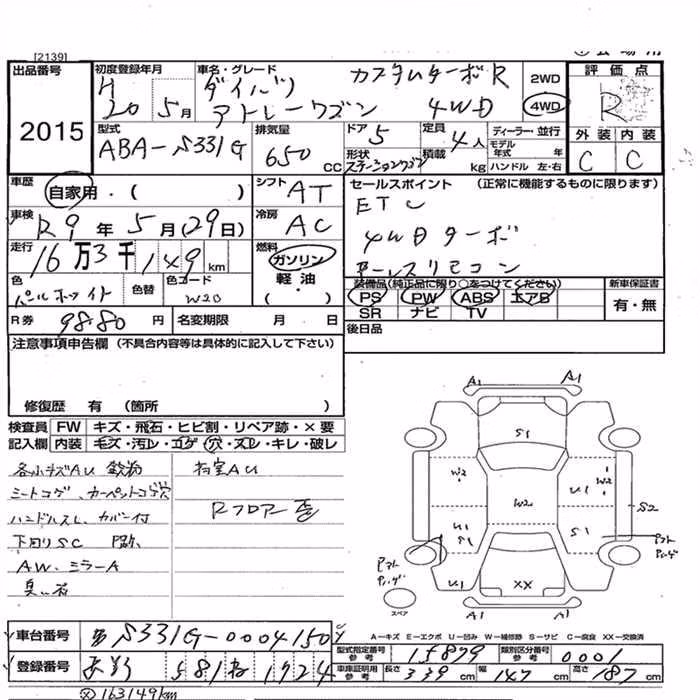 [2139]
出品番号
2015
初度登録年月
H
20 5月
車名・グレード
ダイハツ カスタムターボR
アトレーワゴン 4WD
2WD
4WD
評価点
R
外装 内装
C C
型式
ABA-S331G
排気量
650 CC
ドア 5
形状 ステーションワゴン
定員 4人
積載 kg
ディーラー・並行
モデル年式 年
ハンドル 左・右
車歴 自家用・( )
シフト AT
車検 R9年5月(29日)
冷房 AC
走行 16万3千149km
燃料
ガソリン
軽油
( )
色 パールホワイト
色替
色コード W20
R券 9880円
名変期限 月 日
セールスポイント (正常に機能するものに限ります)
ETC
4WDターボ
キーレスリモコン
装備品(純正品に限り○をつけてください)
PS PW ABS エアB
SR ナビ TV
新車保証書
有・無
後日品
注意事項申告欄(不具合内容等は具体的に記入して下さい)
修復歴 有 (箇所 )
検査員記入欄
FW キズ・飛石・ヒビ割・リペア跡・×要
内装 キズ・汚レ・コゲ・穴・スレ・キレ・破レ
各小キズAU
シートコゲ、カーペットコゲ穴
ハンドルスレ、カバー付
下回りSC
AW、ミラーA
Rフロア歪
A1 A1
S1
W2 W2
W2
U1
U1
S1
S1
S2
U1
XX
A1 A1
スペア
A-キズ E-エクボ U-凹み W-補修跡 S-サビ C-腐食 XX-交換済
車台番号 S331G-0004150
登録番号 581 1724
型式指定番号 参考 15879
類別区分番号 参考 0001
車庫証明用 参考 長さ 339cm 幅 147cm 高さ 187cm
163149km